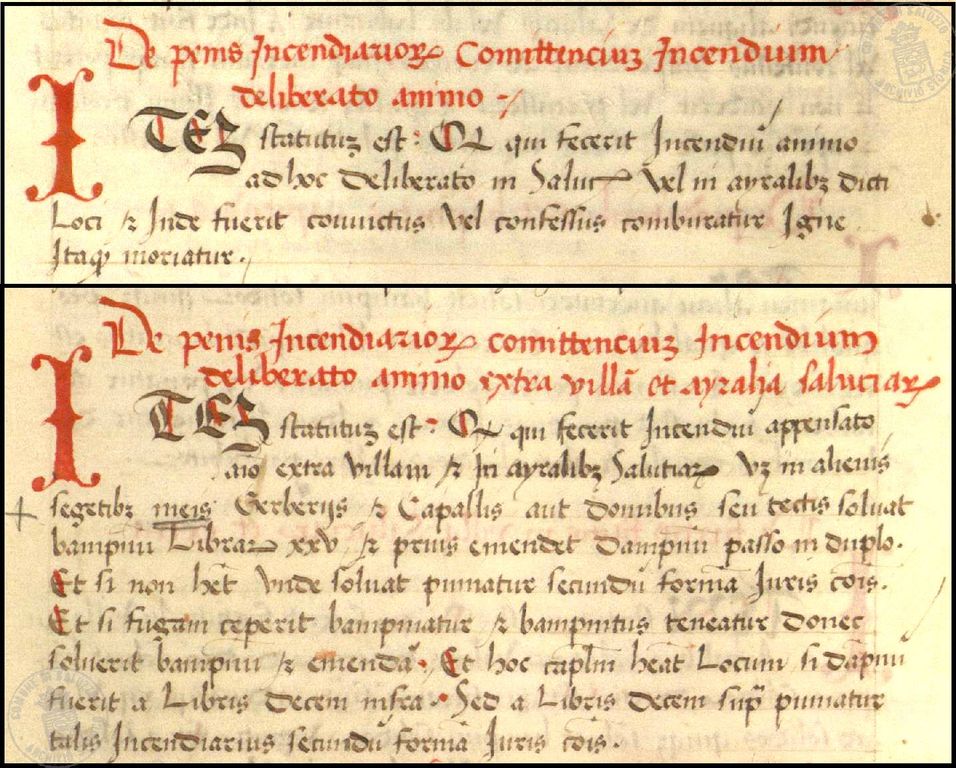 De penis Incendiarioꝝ Comittenciuꝫ Incendium
deliberato animo
ITEꝫ statutuꝫ est: Qꝫ qui fecerit Incendiū animo
ad hoc deliberato in Saluc Vel in ayralibꝫ dicti
Loci & Inde fuerit convictus Vel confessus comburatur Igne
Itaqꝫ moriatur.
De penis Incendiarioꝝ comittenciuꝫ Incendium
deliberato animo extra villā et ayralia saluciaꝝ
ITEꝫ statutuꝫ est: Qꝫ qui fecerit Incendiū appensato
aīo extra Villam & In ayralibꝫ Salutiaꝝ Vꝫ in alienis
segetibꝫ meis Gerberijs & Capallis aut domibus seu tectis solvat
bampnū Libraꝝ xxv & prius emendet dampnū passo in duplo.
Et si non het̄ Vnde solvat puniatur secundū formā Juris cōis.
Et si fugam ceperit bampniatur & bampnitus teneatur donec
solverit bampnū & emendā. Et hoc capl̄m heāt Locum si dāpnū
fuerit a Libris decem infra. Sed a Libris decem sup̄ puniatur
talis Incendiarius secundū formā Juris cōis.